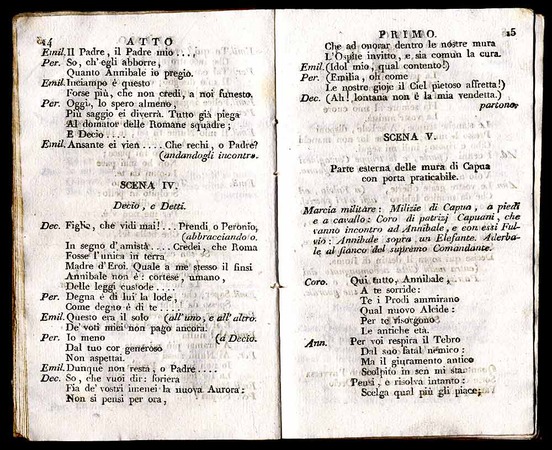 14 ATTO
Emil. Il Padre, il Padre mio ....
Per. So, ch'egli abborre,
Quanto Annibale io pregio.
Emil. Inciampo è questo
Forse più, che non credi, a noi funesto.
Per. Oggi, lo spero almeno,
Più saggio ei diverrà. Tutto già piega
Al domator delle Romane squadre;
E Decio ....
Emil. Ansante ei vien .... Che rechi, o Padre?
(andandogli incontro.
SCENA IV.
Decio, e Detti.
Dec. Figlie, che vidi mai! .. Prendi o Peronio,
(abbracciando o.
In segno d'amistà .... Credei, che Roma
Fosse l'unica in terra
Madre d'Eroi. Quale a me stesso il finsi
Annibale non è: cortese, umano,
Delle leggi custode ....
Per. Degna è di lui la lode,
Come degno è di te ....
Emil. Questo era il solo (all'uno, e all'altro.
De' voti miei non pago ancora.
Per. Io meno (a Decio.
Dal tuo cor generoso
Non aspettai.
Emil. Dunque non resta, o Padre ....
Dec. So, che vuoi dir: foriera
Fia de' vostri imenei la nuova Aurora:
Non si pensi per ora,
PRIMO. 15
Che ad onorar dentro le nostre mura
L'Ospite invitto, e sia comun la cura.
Emil. (Idol mio, qual contento!)
Per. (Emilia, oh come
Le nostre gioje il Ciel pietoso affretta!)
Dec. (Ah! lontana non è la mia vendetta.)
partono.
SCENA V.
Parte esterna delle mura di Capua
con porta praticabile.
Marcia militare: Milizie di Capua, a piedi
e a cavallo: Coro di patrizj Capuani, che
vanno incontro ad Annibale, e con essi Ful-
vio: Annibale sopra un Elefante. Aderba-
le al fianco del supremo Comandante.
Coro. Qui tutto, Annibale,
A te sorride:
Te i Prodi ammirano
Qual nuovo Alcide:
Per te risorgono
Le antiche età.
Ann. Per voi respira il Tebro
Dal suo fatal nemico:
Ma il giuramento antico
Scolpito in sen mi sta.
Pensi, e risolva intanto:
Scelga qual più gli piace;